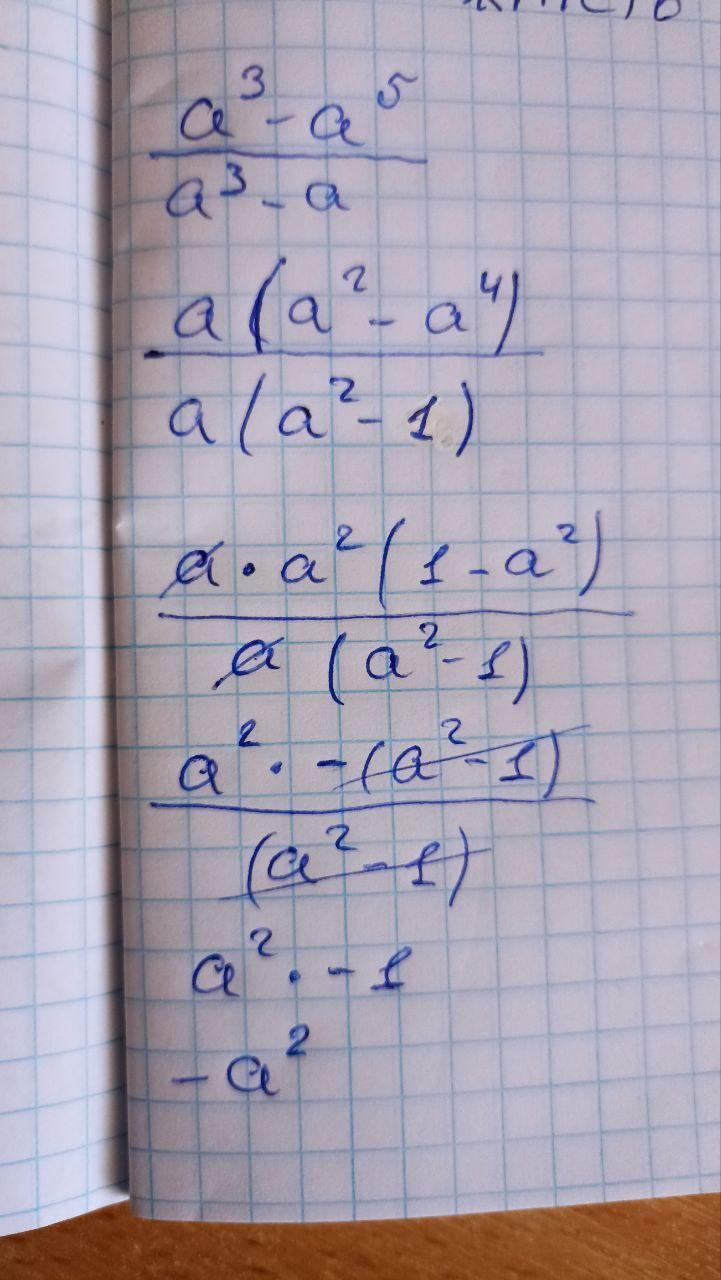 a³ - a⁵
a³ - a
a (a² - a⁴)
a (a² - 1)
a · a² (1 - a²)
a (a² - 1)
a² · -(a² - 1)
(a² - 1)
a² · - 1
- a²